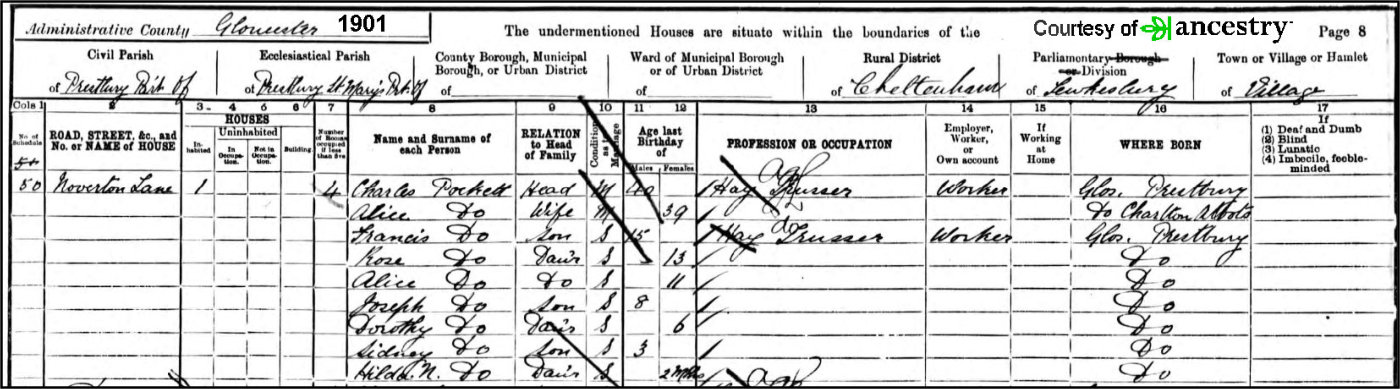 Administrative County Gloucester 1901 The undermentioned Houses are situate within the boundaries of the Courtesy of ancestry Page 8
Civil Parish Ecclesiastical Parish County Borough, Municipal Borough, or Urban District Ward of Municipal Borough or of Urban District Rural District Parliamentary Borough or Division Town or Village or Hamlet
of Prestbury Prt. Of of Prestbury St Mary's Prt. Of of of of Cheltenham of Tewkesbury of Village
Cols 1 2 3 4 5 6 7 8 9 10 11 12 13 14 15 16 17
No. of Schedule ROAD, STREET, &c., and No. or NAME of HOUSE HOUSES Inhabited Uninhabited In Occupation. Not in Occupation. Building Number of Rooms occupied if less than five Name and Surname of each Person RELATION to Head of Family Condition as to Marriage Age last Birthday of Males Females PROFESSION OR OCCUPATION Employer, Worker, or Own account If Working at Home WHERE BORN If (1) Deaf and Dumb (2) Blind (3) Lunatic (4) Imbecile, feeble-minded
50 Noverton Lane 1 4 Charles Pockett Head M 40 Hay Trusser agl Worker Glos. Prestbury
Alice Do Wife M 39 Do Charlton Abbots
Francis Do Son S 15 Hay Trusser do Worker Glos. Prestbury
Rose Do Daur S 13 Do
Alice Do Do S 11 Do
Joseph Do Son S 8 Do
Dorothy Do Daur S 6 Do
Sidney Do Son S 3 Do
Hilda. N. Do Daur S 2 Mths Do
agl